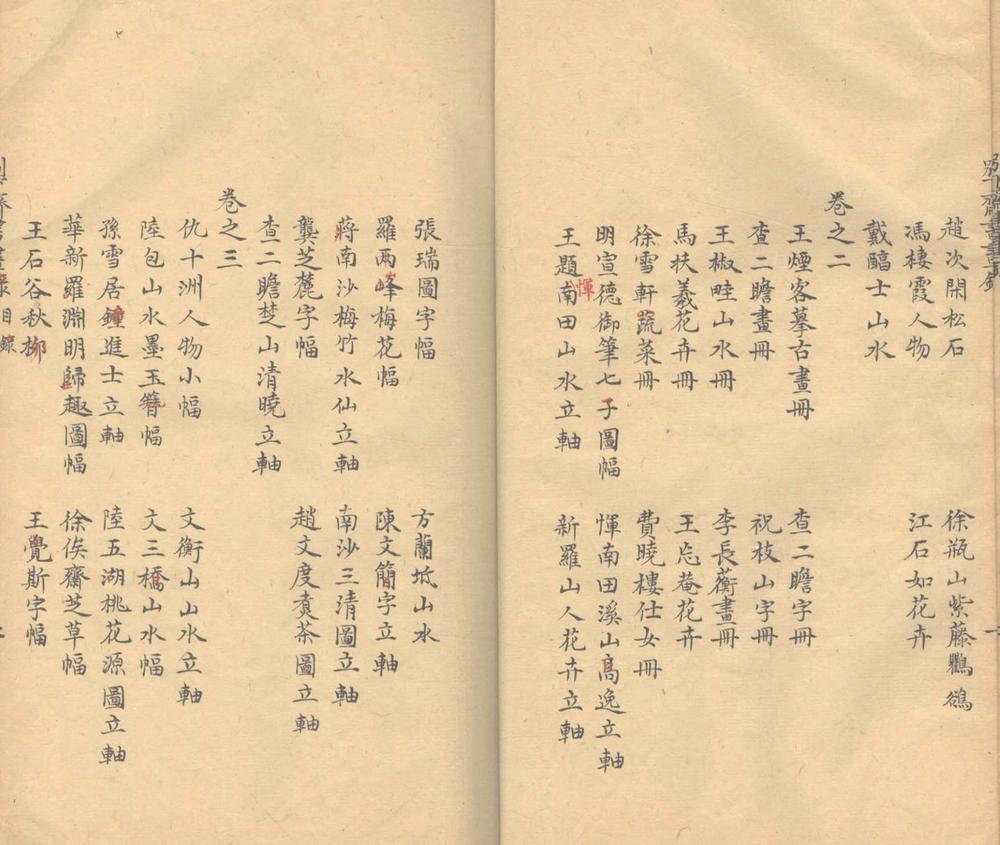 趙次閑松石
徐瓶山紫藤鸜鵒
馮棲霞人物
江石如花卉
戴醕士山水
卷之二
王煙客摹古畫冊
查二瞻字冊
查二瞻畫冊
祝枝山字冊
王椒畦山水冊
李長蘅畫冊
馬扶羲花卉冊
王忘菴花卉
徐雪軒蔬菜冊
費曉樓仕女冊
明宣德御筆七子圖幅
惲南田溪山高逸立軸
王題惲南田山水立軸
新羅山人花卉立軸
張瑞圖字幅
方蘭坻山水
羅兩峰梅花幅
陳文簡字立軸
蔣南沙梅竹水仙立軸
南沙三清圖立軸
龔芝麓字幅
趙文度賣茶圖立軸
查二瞻楚山清曉立軸
卷之三
仇十洲人物小幅
文衡山山水立軸
陸包山水墨玉簪幅
文三橋山水幅
孫雪居鍾進士立軸
陸五湖桃花源圖立軸
華新羅淵明歸趣圖幅
徐俟齋芝草幅
王石谷秋柳
王覺斯字幅